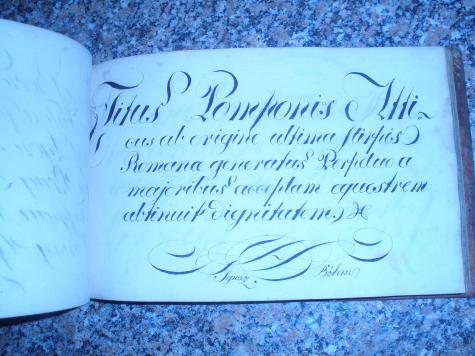 Titus Pomponis Atti~
cus ab origine ultima stirpis
Romanæ generatus Perpetuo a
majoribus acceptam equestrem
abtinuit dignitatem
Ignaz Böhm